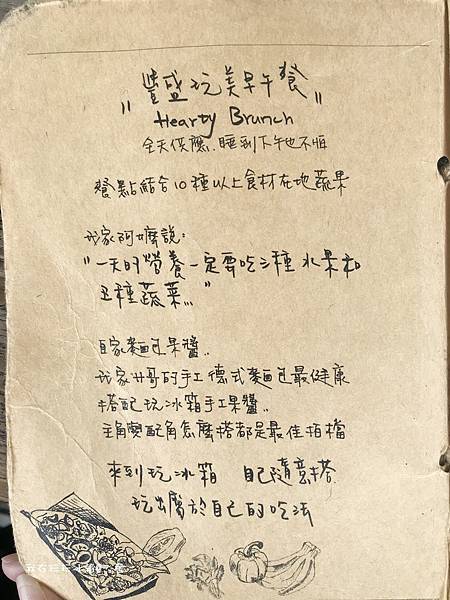 "豐盛玩美早午餐"
Hearty Brunch
全天供應.睡到下午也不怕
餐點結合10種以上食材在地蔬果
我家阿嬤說:
"一天的營養一定要吃3種水果和
五種蔬菜..."
自家麵包果醬..
我家廿哥的手工德式麵包最健康
搭配玩冰箱手工果醬..
主角與配角怎麼搭都是最佳拍檔
來到玩冰箱 自己隨意搭
玩出屬於自己的吃法